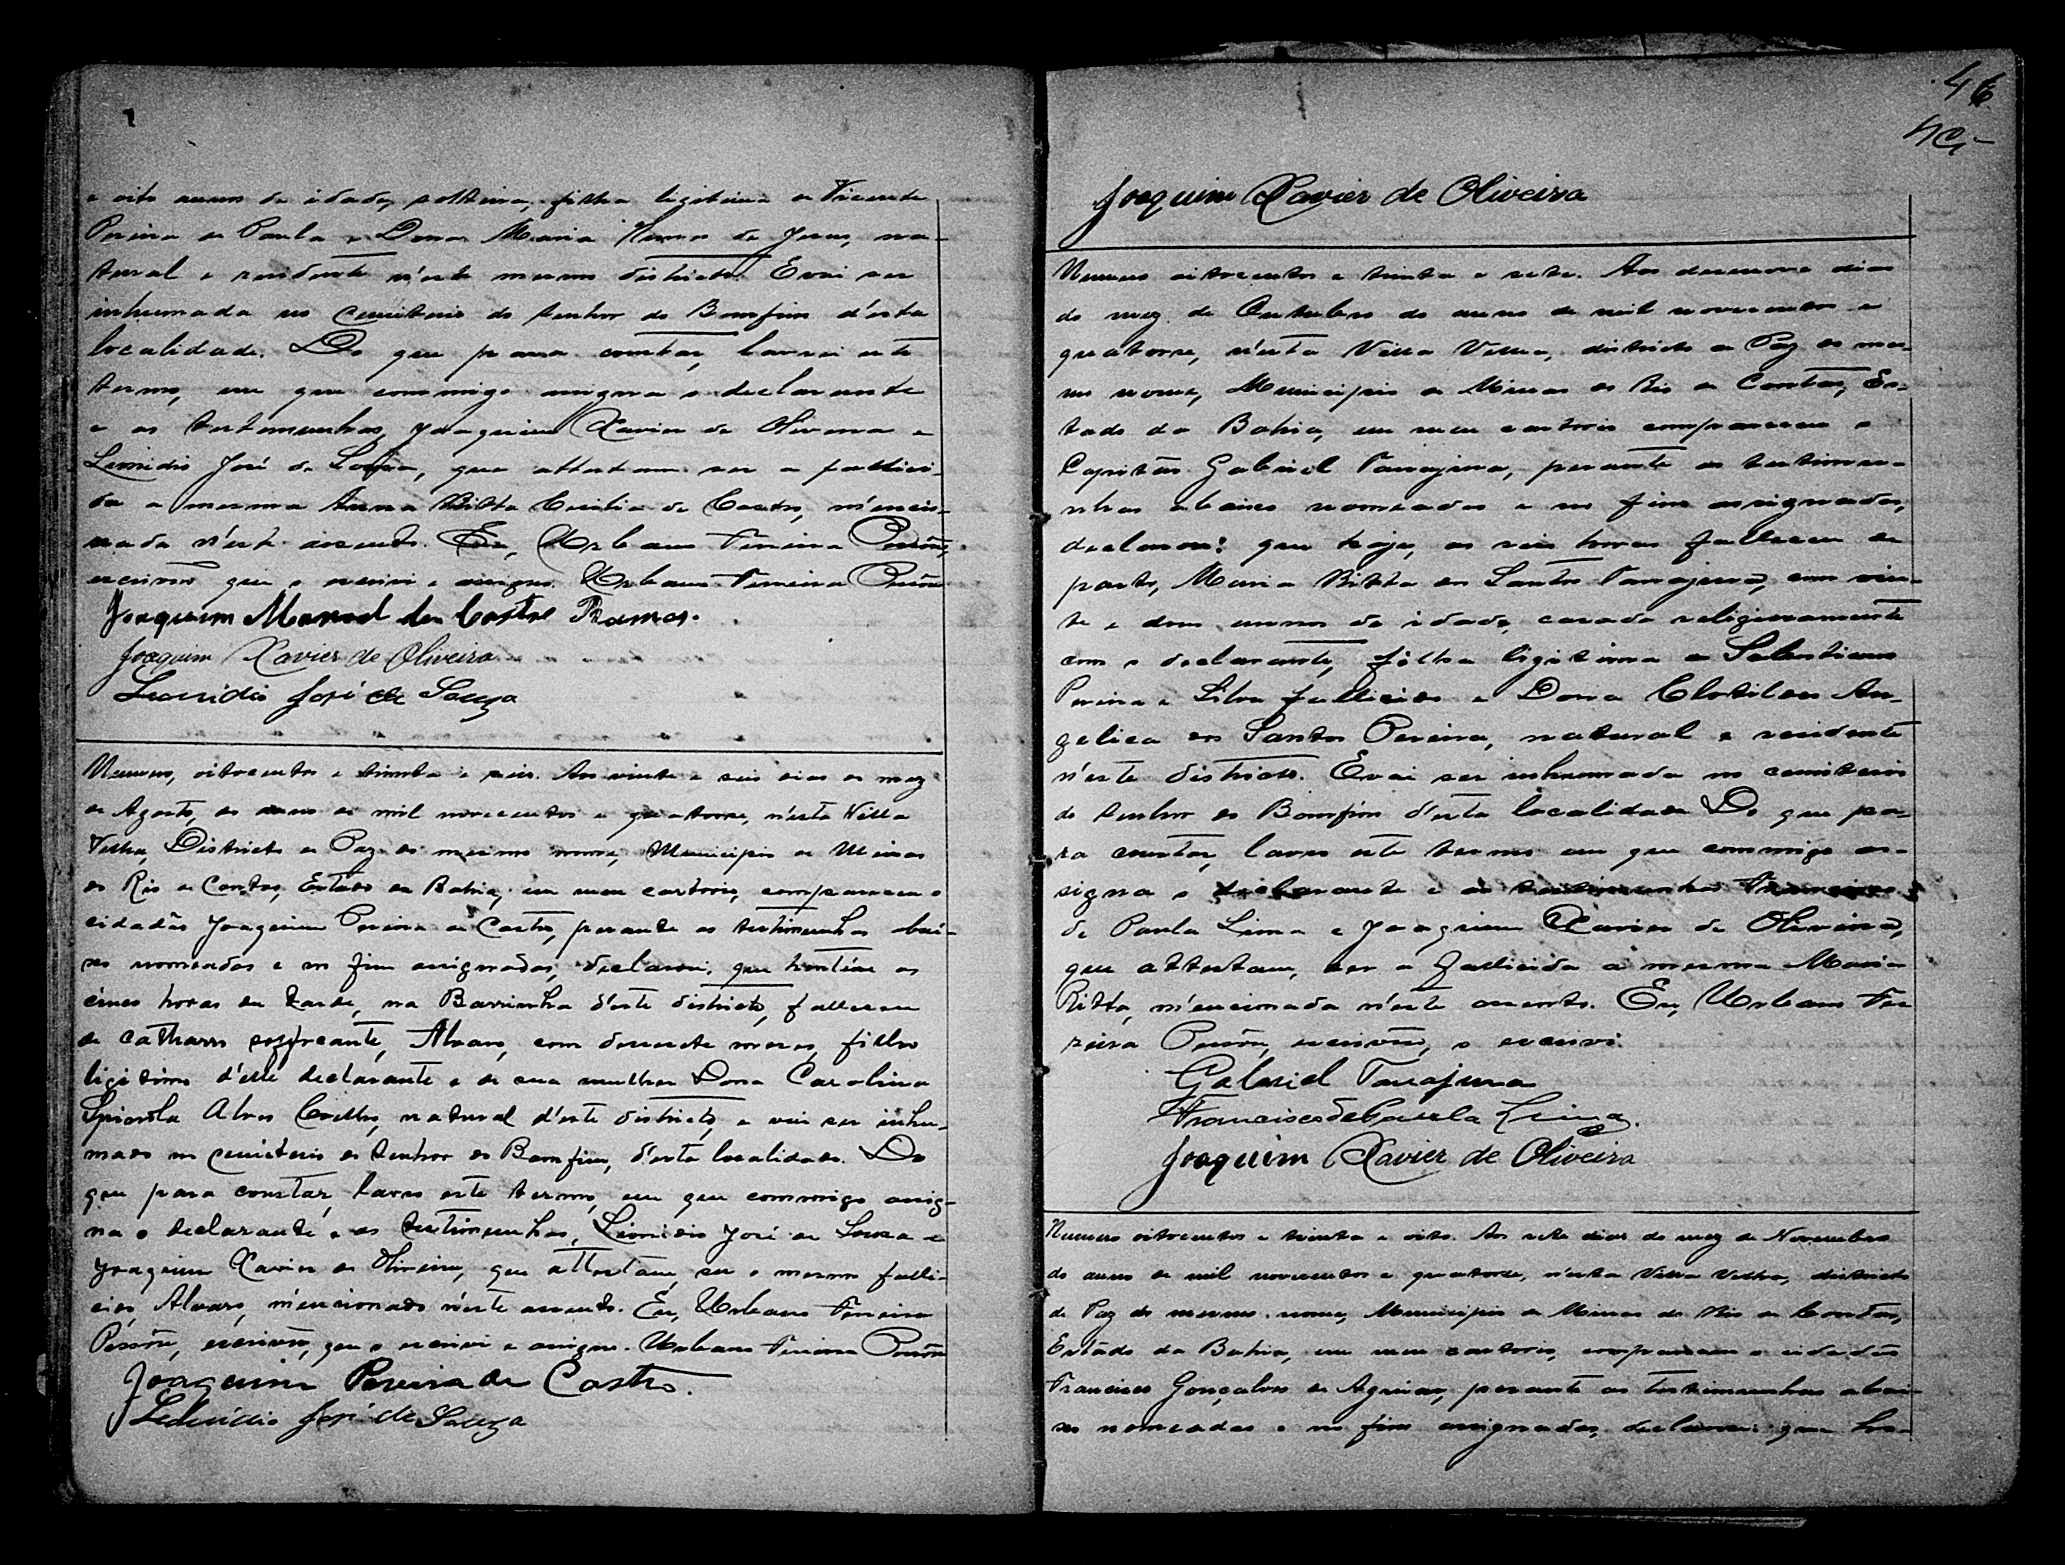 e oito annos de idade, solteira, filha legitima de Vicente
Pereira de Paula e Dona Maria de Jesus, na-
tural e residente n'este mesmo districto. E vai ser
inhumada no cemiterio do Senhor do Bomfim d'esta
localidade. Do que para constar, lavrei este
termo, em que commigo assigna o declarante
e as testemunhas Joaquim Xavier de Oliveira e
Leonidio José de Souza, que attestam ser a falleci-
da a mesma Anna Ritta Cecilia de Castro, mencio-
nada n'este assento. Eu, Urbano Ferreira
escrivão que o escrevi e assigno. Urbano Ferreira
Joaquim Manoel de Castro Ramos.
Joaquim Xavier de Oliveira
Leonidio José de Souza
Numero, oitocentos e trinta e seis. Aos vinte e seis dias do mez
de Agosto, do anno de mil novecentos e quatorze, n'esta Villa
Velha, Districto de Paz do mesmo nome, Municipio de Minas
do Rio de Contas, Estado da Bahia, em meu cartorio, compareceu o
cidadão Joaquim Pereira de Castro, perante as testimunhas abai-
xo nomeadas e no fim assignadas, declarou: que hontem as
cinco horas da tarde, na Barrinha d'este districto, falleceu
de catharro soffocante, Alvaro, com desesete mezes, filho
legitimo d'elle declarante e de sua mulher Dona Carolina
Spinola Alves Coelho, natural d'este districto, e vai ser inhu-
mado no cemiterio do Senhor do Bomfim, d'esta localidade. Do
que para constar, lavro este termo, em que commigo assig-
na o declarante e as testimunhas, Leonidio José de Souza e
Joaquim Xavier de Oliveira, que attestam, ser o mesmo falle-
cido, Alvaro, mencionado n'este assento. Eu, Urbano Ferreira
escrivão, que o escrevi e assigno. Urbano Ferreira
Joaquim Pereira de Castro.
Leonidio José de Souza
46
Joaquim Xavier de Oliveira
Numero oitocentos e trinta e sete. Aos desenove dias
do mez de Outubro do anno de mil novecentos e
quatorze, n'esta Villa Velha, districto de Paz do mes-
mo nome, Municipio de Minas do Rio de Contas, Es-
tado da Bahia, em meu cartorio compareceu o
Capitão Gabriel Tanajura, perante as testimu-
nhas abaixo nomeadas e no fim assignadas,
declarou: que hoje, as seis horas falleceu de
parto, Maria Ritta dos Santos Tanajura, com vin-
te e dous annos de idade, casada religiosamente
com o declarante, filha legitima de Salustiano
Pereira e Silva fallecido e Dona Clotildes An-
gelica dos Santos Pereira, natural e residente
n'este districto. E vai ser inhumada no cemiterio
do Senhor do Bomfim d'esta localidade Do que pa-
ra constar, lavro este termo em que commigo as-
signa o declarante e as testimunhas Francisco
de Paula Lima e Joaquim Xavier de Oliveira,
que attestam, ser a fallecida a mesma Maria
Ritta, mencionada n'este assento. Eu, Urbano Fer-
reira escrivão, o escrevi.
Gabriel Tanajura
Francisco de Paula Lima.
Joaquim Xavier de Oliveira
Numero oitocentos e trinta e oito. Aos sete dias do mez de Novembro
do anno de mil novecentos e quatorze, n'esta Villa Velha, districto
de Paz do mesmo nome, Municipio de Minas do Rio de Contas,
Estado da Bahia, em meu cartorio, compareceu o cidadão
Francisco Gonçalves de Aguiar, perante as testimunhas abai-
xo nomeadas e no fim assignadas, declarou: que ho-